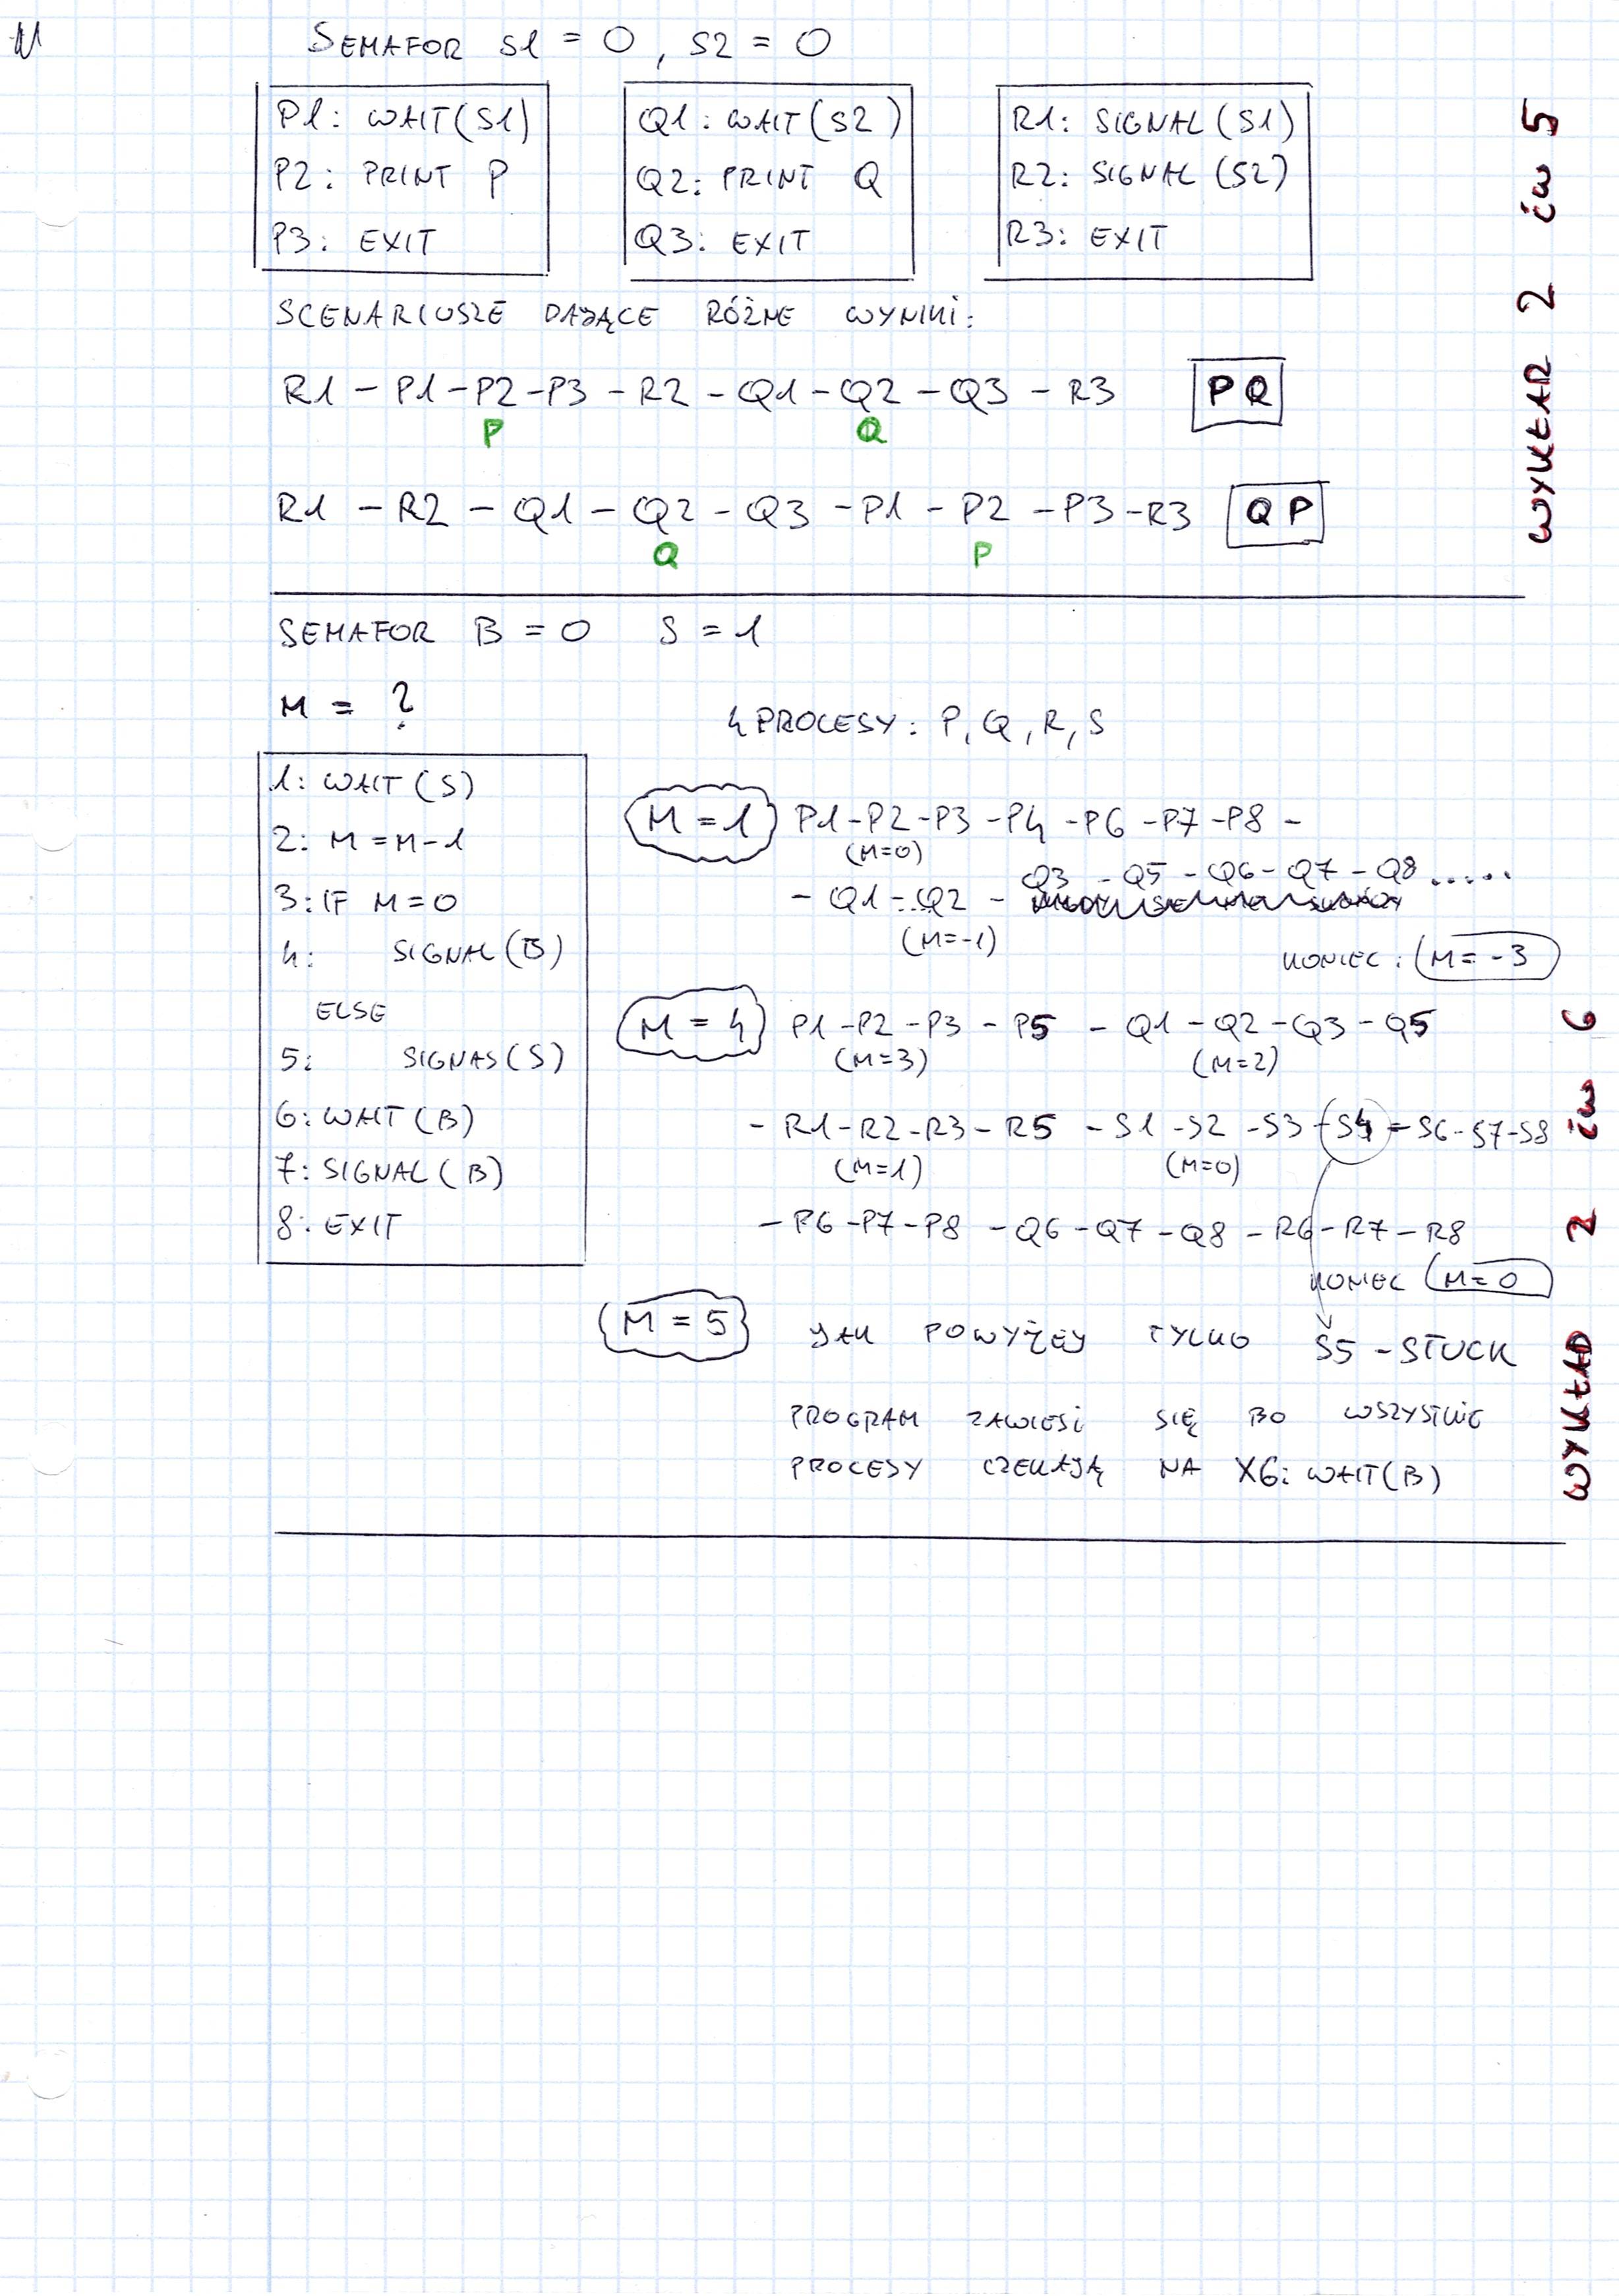 SEMAFOR S1 = 0, S2 = 0
P1: WAIT(S1)
P2: PRINT P
P3: EXIT
Q1: WAIT(S2)
Q2: PRINT Q
Q3: EXIT
R1: SIGNAL(S1)
R2: SIGNAL(S2)
R3: EXIT
SCENARIUSZE DAJĄCE RÓŻNE WYNIKI:
R1 - P1 - P2 - P3 - R2 - Q1 - Q2 - Q3 - R3 PQ
P Q
R1 - R2 - Q1 - Q2 - Q3 - P1 - P2 - P3 - R3 QP
Q P
WYKŁAD 2 ćw 5
SEMAFOR B = 0 S = 1
M = ?
4 PROCESY: P, Q, R, S
1: WAIT(S)
2: M = M-1
3: IF M = 0
4: SIGNAL(B)
ELSE
5: SIGNAS(S)
6: WAIT(B)
7: SIGNAL(B)
8: EXIT
M = 1 P1 - P2 - P3 - P4 - P6 - P7 - P8 -
(M=0)
- Q1 - Q2 - Q3 - Q5 - Q6 - Q7 - Q8 .....
(M=-1)
KONIEC: M = -3
M = 4 P1 - P2 - P3 - P5 - Q1 - Q2 - Q3 - Q5
(M=3) (M=2)
- R1 - R2 - R3 - R5 - S1 - S2 - S3 - S4 - S6 - S7 - S8
(M=1) (M=0)
- P6 - P7 - P8 - Q6 - Q7 - Q8 - R6 - R7 - R8
KONIEC M = 0
M = 5 JAK POWYŻEJ TYLKO S5 - STUCK
PROGRAM ZAWIESI SIĘ BO WSZYSTKIE
PROCESY CZEKAJĄ NA X6: WAIT(B)
WYKŁAD 2 ćw 6